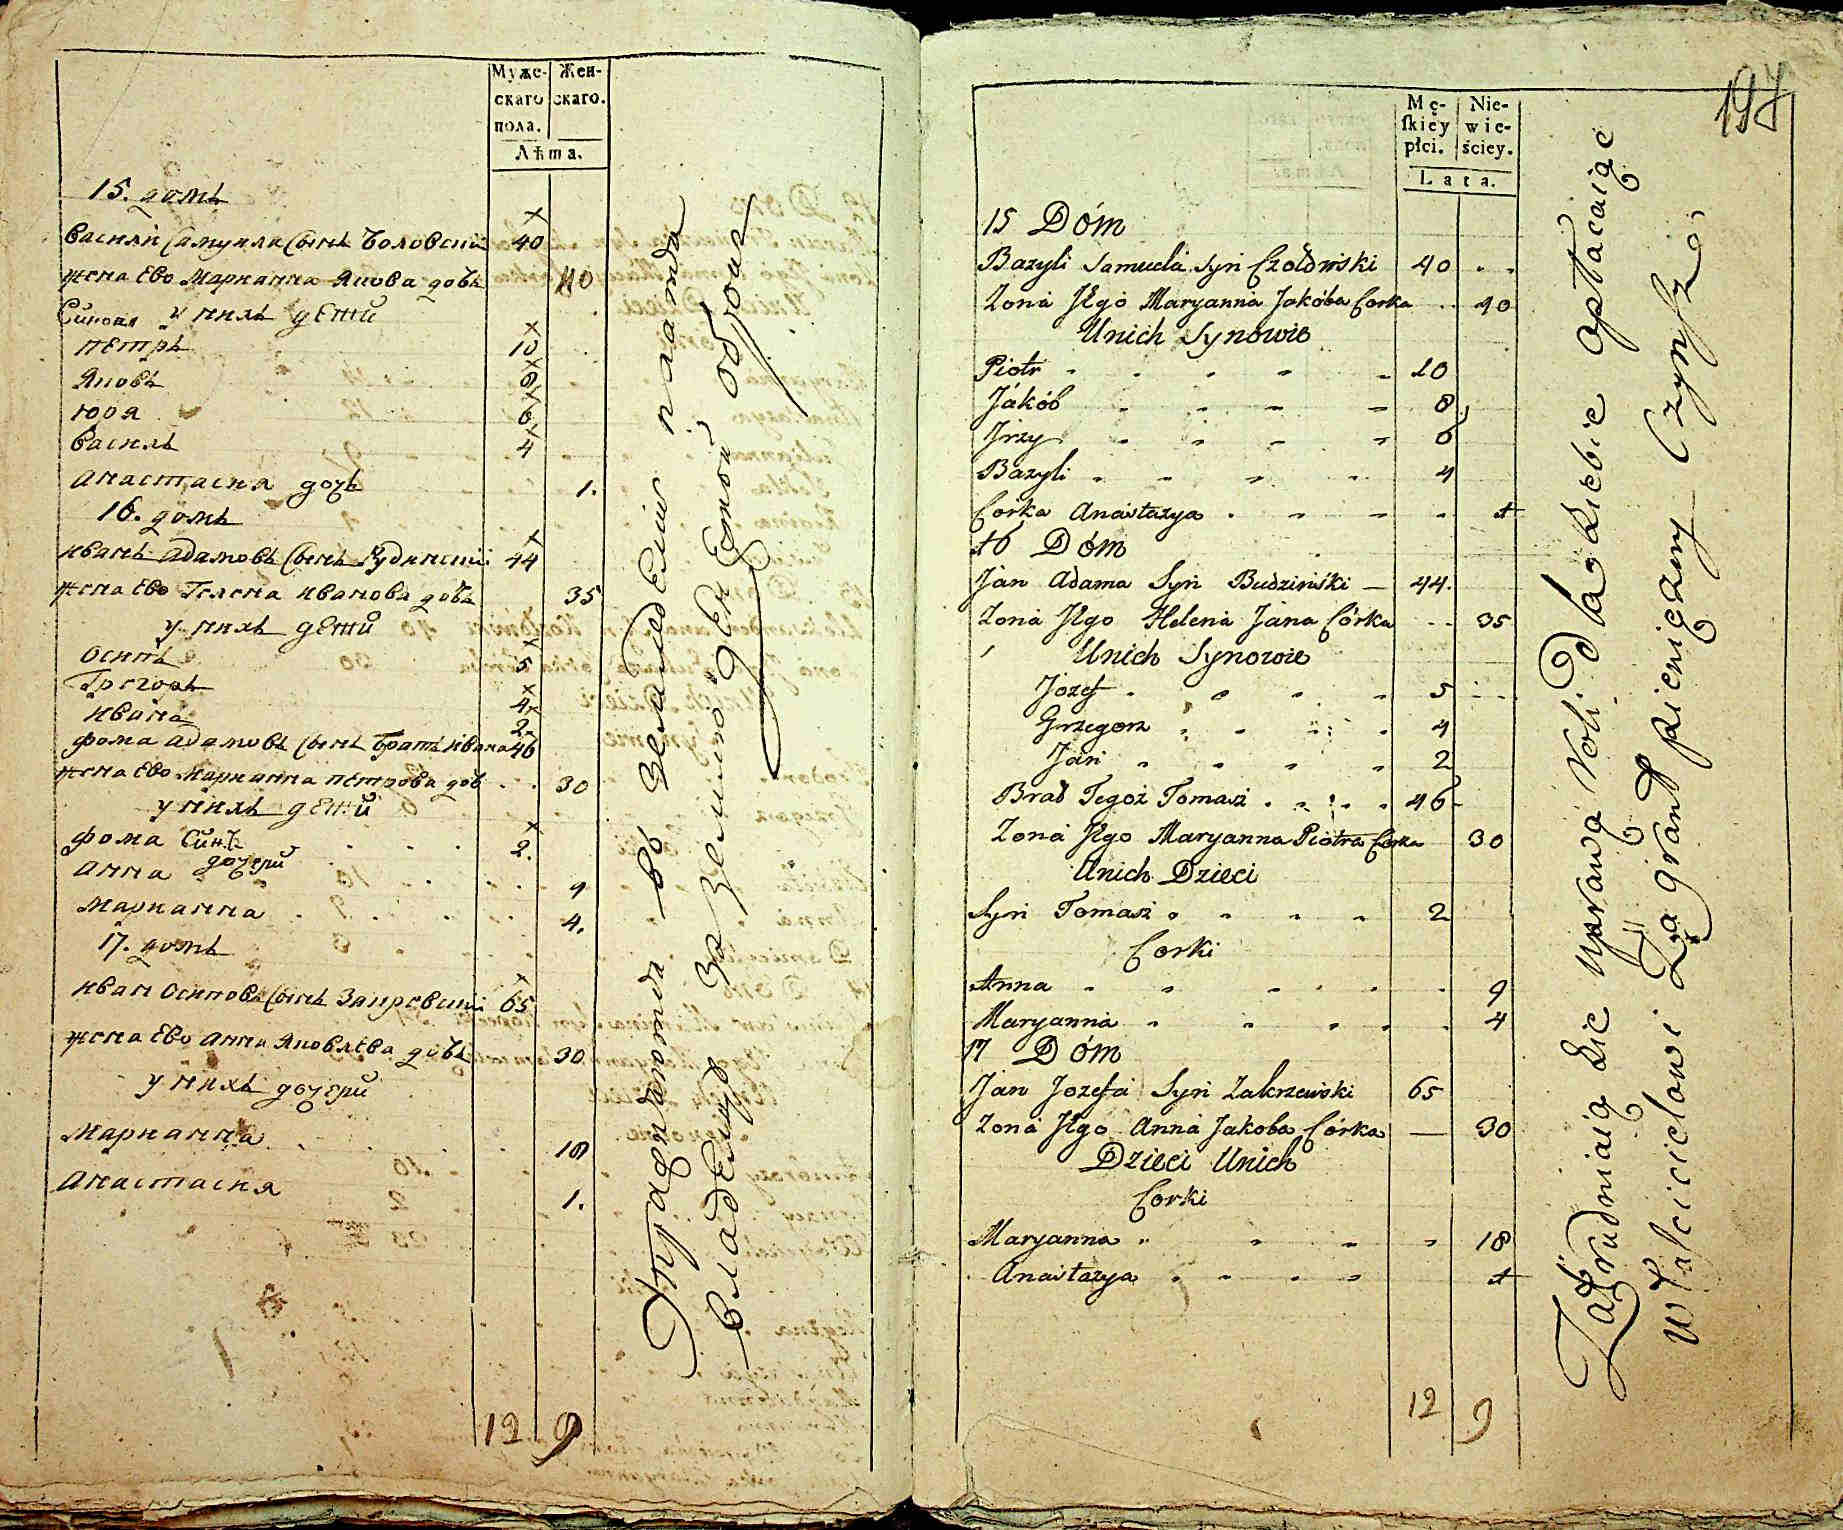 Муже-
скаго
пола.
Жен-
скаго.
Лѣта.
15. домъ
Василй Самуила Сынъ 40
жена Ево Марианна Якова дочь 40
Синовя у нихъ дети
Петръ 10
Яковъ 8
Юря 6
Василь 4
Анастасия дочь 1.
16. домъ
Иванъ Адамовъ Сынъ 44
жена Ево Гелена Иванова дочь 35
у нихъ дети
Осипъ 5
Грегоръ 4
Иванъ 2
Фома Адамовъ Сынъ Братъ Ивана 46
жена Ево Марианна Петрова доч 30
у нихъ дети
Фома Синъ 2.
Анна дочери 9
Марианна 4.
17. домъ
Иван Осиповъ Сынъ 65
жена Ево Анна Яковлева дочь 30
у нихъ дочери
Марианна 18
Анастасия 1.
12 9
въ земледелии платя
владельцу за землю денежной оброкъ
197
Mę-
skiey
płci.
Nie-
wie-
ściey.
Lata.
15 Dóm
Bazyli Samuela Syn Czołowski 40
Zona Jego Maryanna Jakóba Corka 40
Unich Synowie
Piotr 10
Jakób 8
Jrzy 6
Bazyli 4
Corka Anastazya 1
16 Dóm
Jan Adama Syn Budzinski 44.
Zona Jego Helena Jana Córka 35
Unich Synowie
Jozef 5
Grzegorz 4
Jan 2
Brad Tegoż Tomasz 46
Zona Jego Maryanna Piotra Corka 30
Unich Dzieci
Syn Tomasz 2
Corki
Anna 9
Maryanna 4
17 Dóm
Jan Jozefa Syn Zakrzewski 65
Zona Jego Anna Jakoba Córka 30
Dzieci Unich
Corki
Maryanna 18
Anastazya 1
12 9
Zatrudniaią Sie uprawą Roli dla Siebie opłacaiąc
właścicielowi Za grunt pieniężny Czynsz